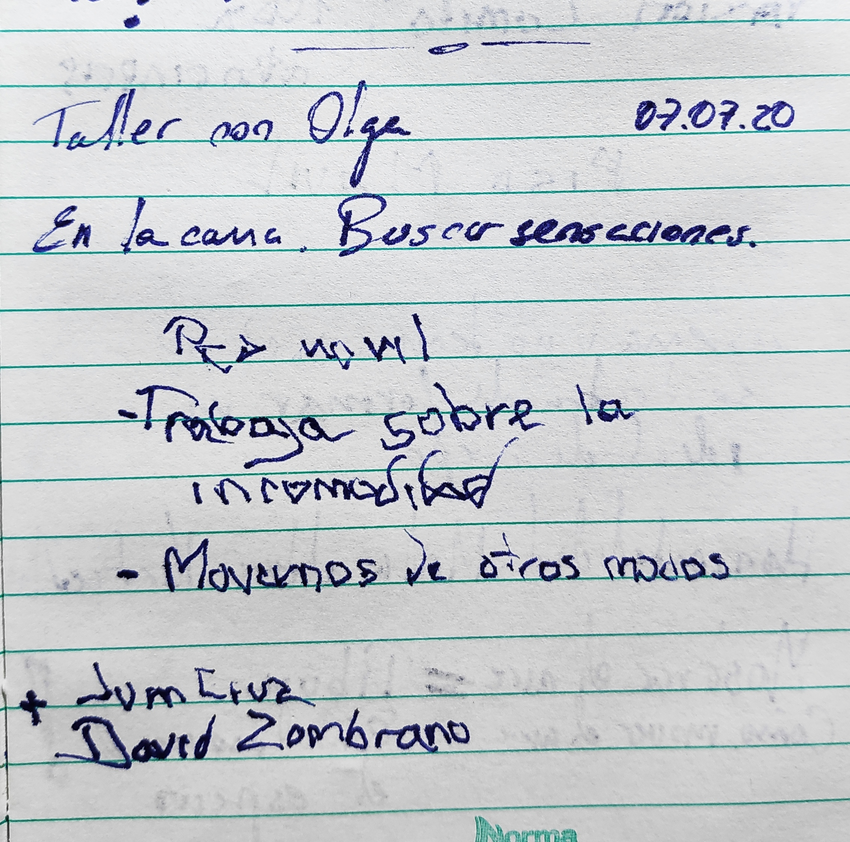 Taller con Olga 07.07.20
En la cama. Buscar sensaciones.
Red
- Trabaja sobre la
incomodidad
- Movernos de otros modos
+ Juan Cruz
David Zambrano
Norma